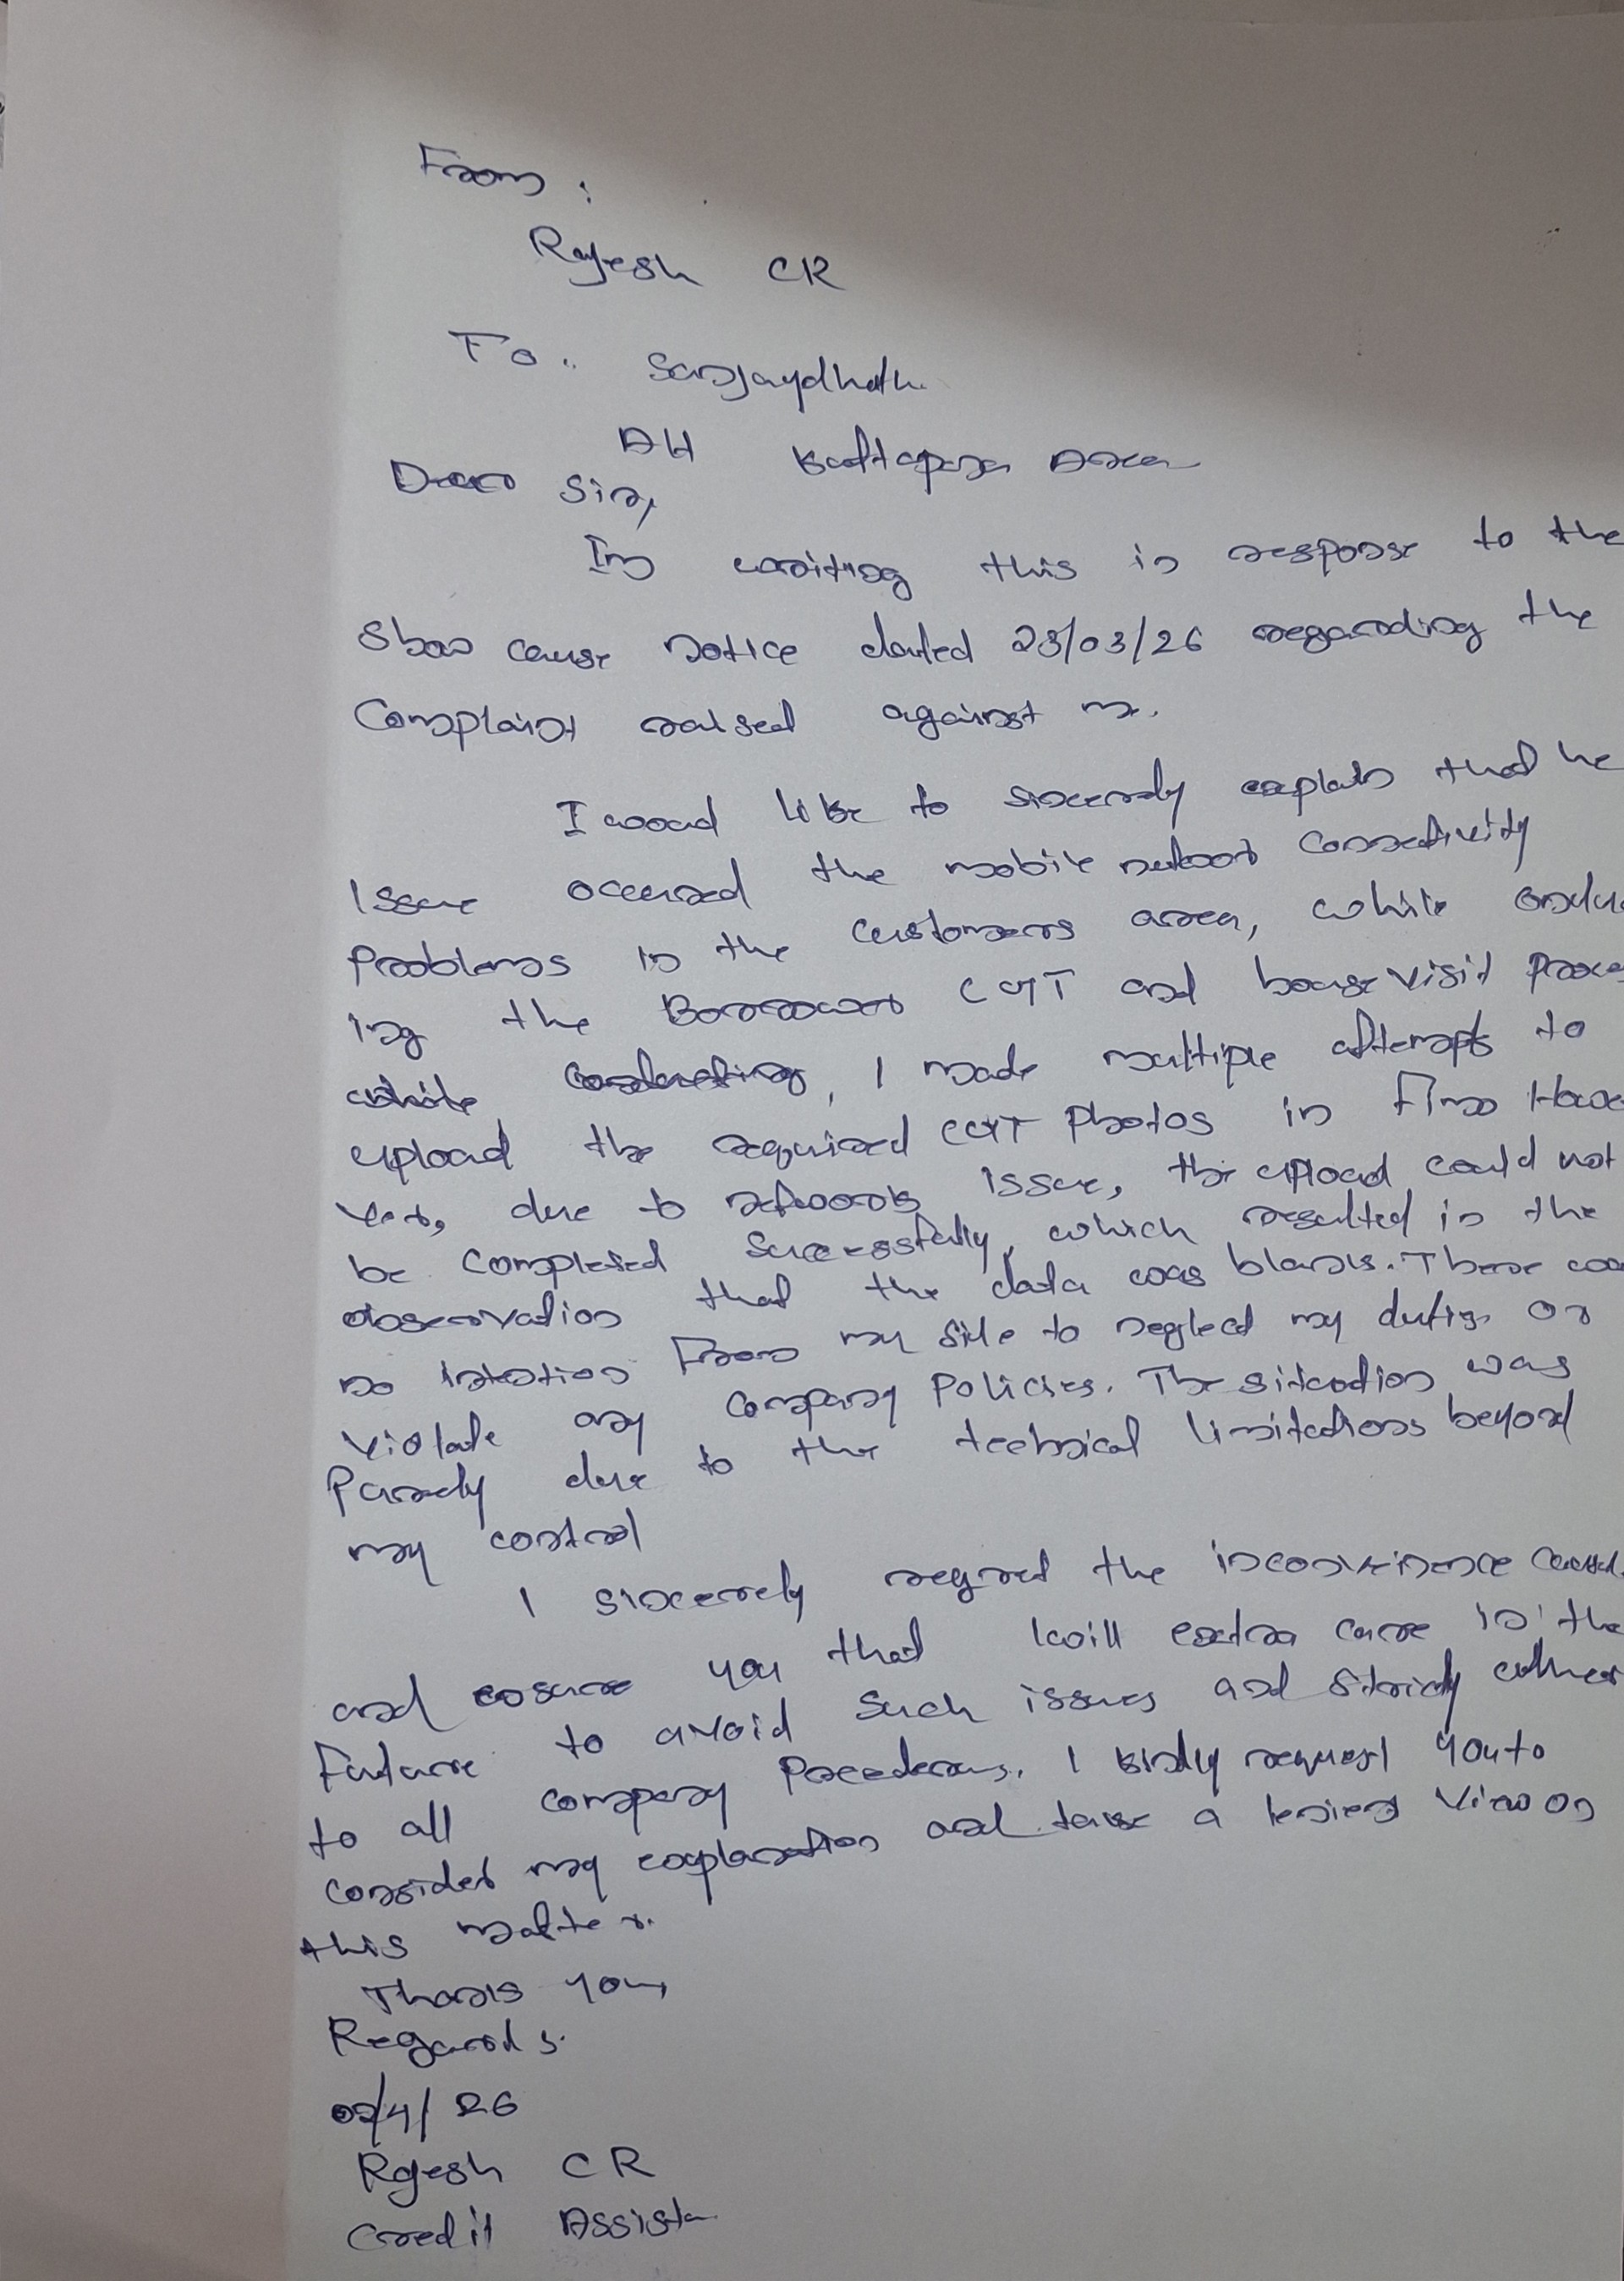 From :
Rajesh CR
To. Sanjaydhath.
AH Area
Dear Sir,
Im writing this in response to the
Show cause notice dated 23/03/26 regarding the
Complaint raised against me.
I would like to sincerely explain that he
Issue occured the mobile network connectivity
Problems in the customers area, while
ing the Borrower CGT and house visit
while conducting, I made multiple attempts to
upload the required CGT Photos in However
ver, due to network issue, the upload could not
be completed successfully, which resulted in the
observation that the data was blank. There was
no intention From my side to neglect my duties or
violate any company Policies. The situation was
Purely due to the technical limitations beyond
my control
I sincerely regret the inconvinence caused
and ensure you that I will extra care in the
Future to avoid such issues and strictly adher
to all company Procedures. I kindly request you to
consider my explanation and take a lenient view on
this matter.
Thank you,
Regards.
02/4/26
Rajesh CR
Credit Assista